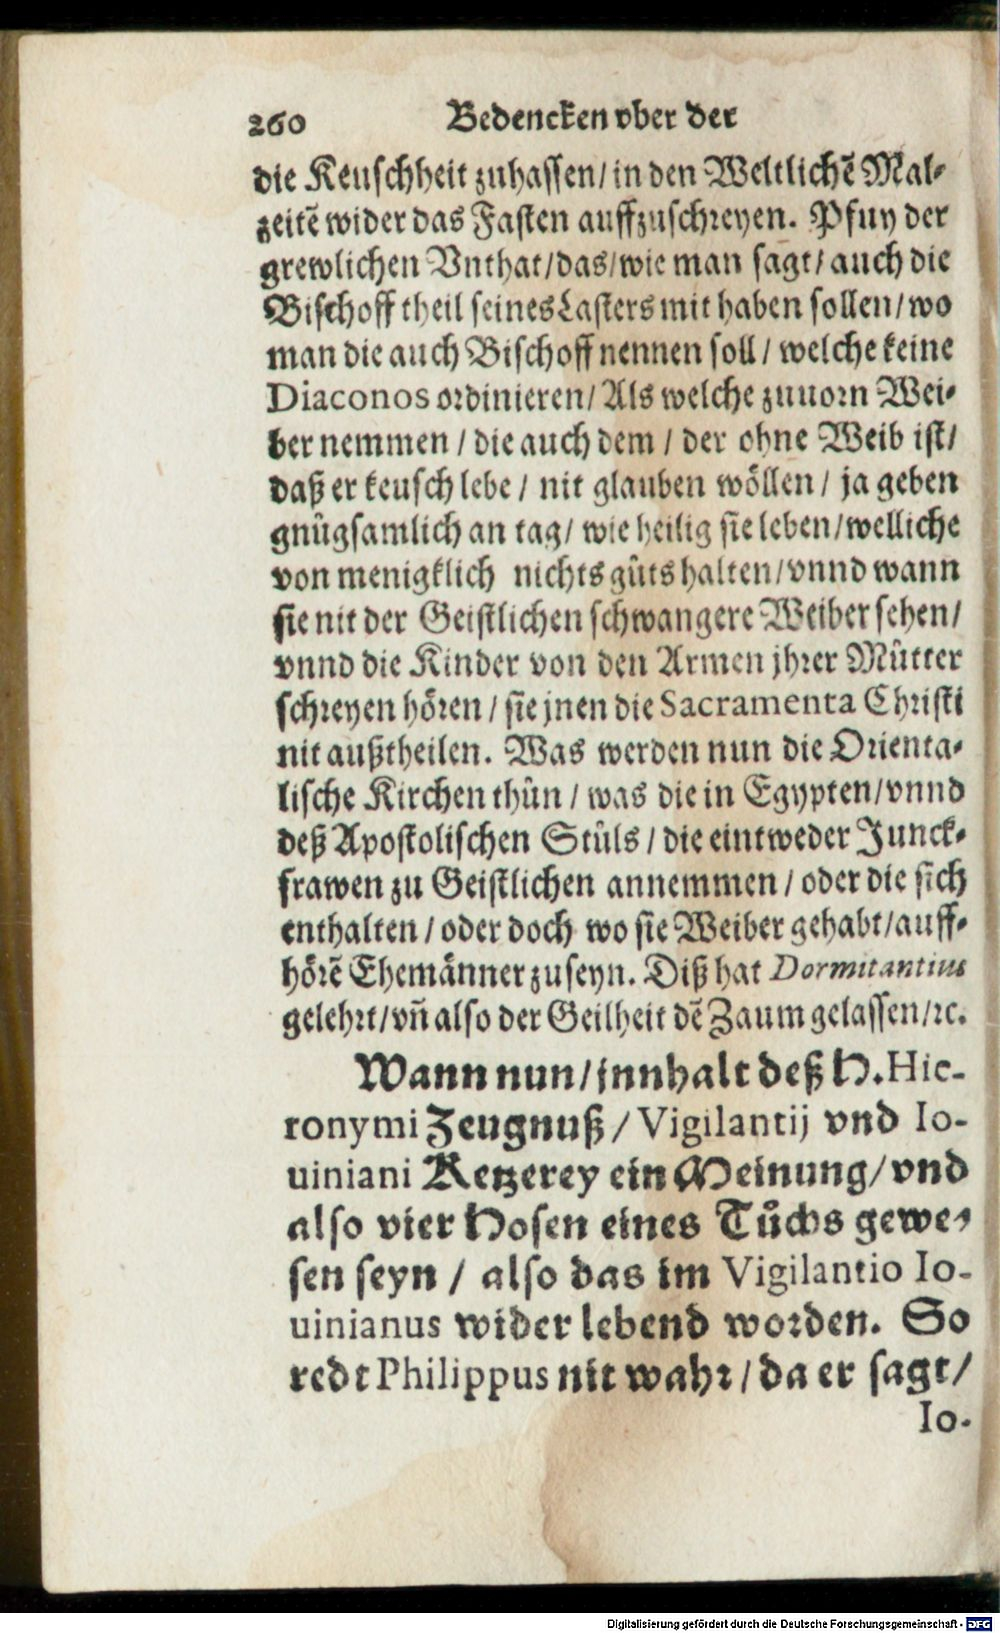 260 Bedencken vber der
die Keuschheit zuhassen/ in den Weltlichē Mal-
zeitē wider das Fasten auffzuschreyen. Pfuy der
grewlichen Vnthat/das/wie man sagt/ auch die
Bischoff theil seines Lasters mit haben sollen/ wo
man die auch Bischoff nennen soll / welche keine
Diaconos ordinieren/ Als welche zuuorn Wei-
ber nemmen / die auch dem / der ohne Weib ist/
daß er keusch lebe / nit glauben wöllen / ja geben
gnůgsamlich an tag/ wie heilig sie leben/welliche
von menigklich nichts gůts halten/vnnd wann
sie nit der Geistlichen schwangere Weiber sehen/
vnnd die Kinder von den Armen jhrer Můtter
schreyen hören / sie jnen die Sacramenta Christi
nit außtheilen. Was werden nun die Orienta-
lische Kirchen thůn / was die in Egypten/vnnd
deß Apostolischen Stůls / die eintweder Junck-
frawen zu Geistlichen annemmen / oder die sich
enthalten / oder doch wo sie Weiber gehabt/auff-
hörē Ehemänner zuseyn. Diß hat Dormitantius
gelehrt/vñ also der Geilheit dē Zaum gelassen/ꝛc.
Wann nun/innhalt deß H. Hie-
ronymi Zeugnuß / Vigilantij vnd Io-
uiniani Ketzerey ein Meinung/vnd
also vier Hosen eines Tůchs gewe-
sen seyn / also das im Vigilantio Io-
uinianus wider lebend worden. So
redt Philippus nit wahr / da er sagt/
Io-
Digitalisierung gefördert durch die Deutsche Forschungsgemeinschaft - DFG